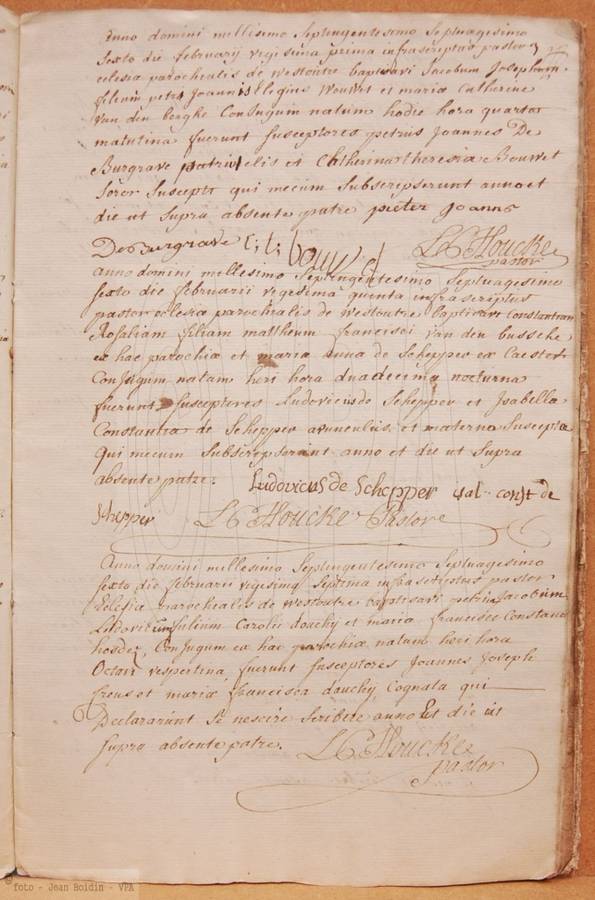 Anno domini millesimo Septingentesimo Septuagesimo
sexto die februarij vigesima prima infrascriptus pastor
eclesia parochialis de westoutre baptisavi Jacobum Josephum
filium petri Joannis Eligius Bouvet et maria Catherine
van den berghe Conjugum natum hodie hora quarta
matutina fuerunt susceptores petrus Joannes De
Burgrave patruelis et Catherina theresia Bouvet
soror suscepti qui mecum subscripserunt anno et
die ut supra absente patre pieter Joanns
De Burgrave c: t: bouwet L C Houcke
pastor
anno domini millesimo Septingentesimo Septuagesimo
sexto die februarii vigesima quinta infrascriptus
pastor eclesia parochialis de westoutre baptisavi Constantiam
Rosaliam filiam matthaeum francisci van den bussche
ex hac parochia et maria anna de Schepper ex Caester
Conjugum natam heri hora duadecima nocturna
fuerunt susceptores Ludovicus de Schepper et Isabella
Constantia de Schepper avunculus et matertera suscepta
qui mecum subscripserunt anno et die ut supra
absente patre. Ludovicus de Schepper isal const de
Schepper L C Houcke Pastore
Anno domini millesimo Septingentesimo Septuagesimo
sexto die februarii vigesima septima infrascriptus pastor
Eclesia parochialis de westoutre baptisavi petrum Jacobum
Ludovicum filium Caroli douchy et maria francisca Constane
hosdey Conjugum ex hac parochia natum heri hora
Octava vespertina, fuerunt susceptores Joannes Joseph
et maria francisca douchy, Cognata qui
Declararunt se nescire scribere anno et die ut
supra absente patre. L C Houcke
pastor
©foto - Jean Boidin - VPA